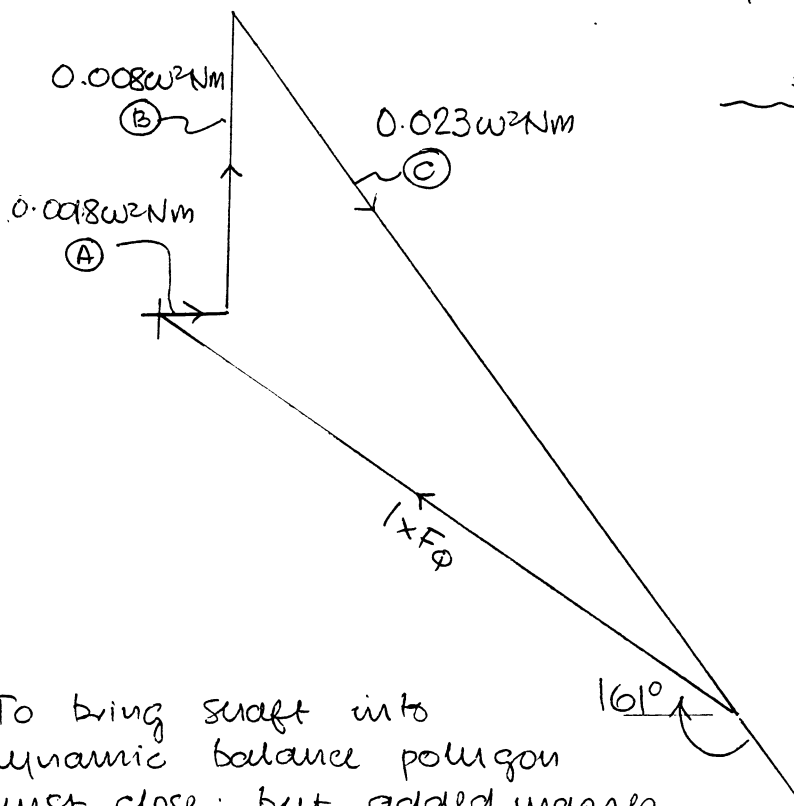 0.008ω²Nm
B
0.023ω²Nm
C
A
1×F
161°
To bring shaft into
dynamic balance polygon
must close; but added masses